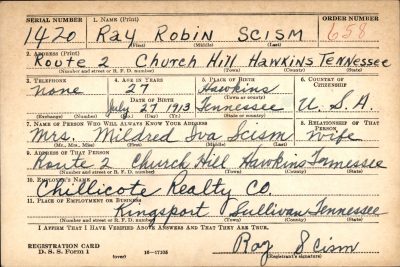 SERIAL NUMBER 1. NAME (Print) ORDER NUMBER
1420 Ray Robin Scism 658
(First) (Middle) (Last)
2. ADDRESS (Print)
Route 2 Church Hill Hawkins Tennessee
(Number and street or R. F. D. number) (Town) (County) (State)
3. TELEPHONE 4. AGE IN YEARS 5. PLACE OF BIRTH 6. COUNTRY OF CITIZENSHIP
none 27 Hawkins
DATE OF BIRTH (Town or county)
July 27 1913 Tennessee U. S. A.
(Exchange) (Number) (Mo.) (Day) (Yr.) (State or country)
7. NAME OF PERSON WHO WILL ALWAYS KNOW YOUR ADDRESS 8. RELATIONSHIP OF THAT PERSON
Mrs. Mildred Iva Scism wife
(Mr., Mrs., Miss) (First) (Middle) (Last)
9. ADDRESS OF THAT PERSON
Route 2 Church Hill Hawkins Tennessee
(Number and street or R. F. D. number) (Town) (County) (State)
10. EMPLOYER'S NAME
Chillicote Realty Co.
11. PLACE OF EMPLOYMENT OR BUSINESS
Kingsport Sullivan Tennessee
(Number and street or R. F. D. number) (Town) (County) (State)
I AFFIRM THAT I HAVE VERIFIED ABOVE ANSWERS AND THAT THEY ARE TRUE.
REGISTRATION CARD
D. S. S. Form 1 16—17105 Ray Scism
(Registrant's signature)